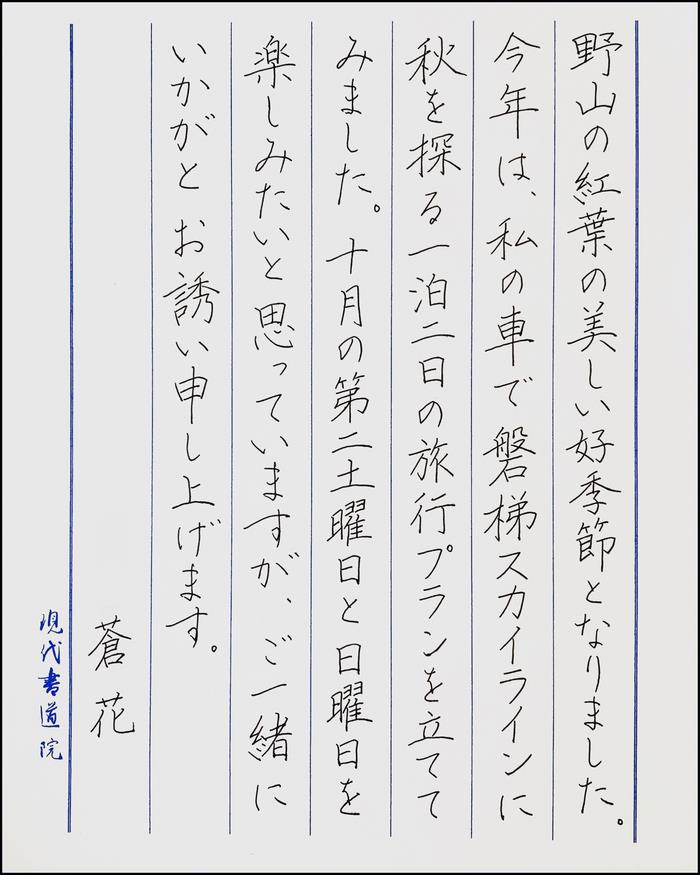 野山の紅葉の美しい好季節となりました。
今年は、私の車で磐梯スカイラインに
秋を探る一泊二日の旅行プランを立てて
みました。十月の第二土曜日と日曜日を
楽しみたいと思っていますが、ご一緒に
いかがと お誘い申し上げます。
蒼花
現代書道院